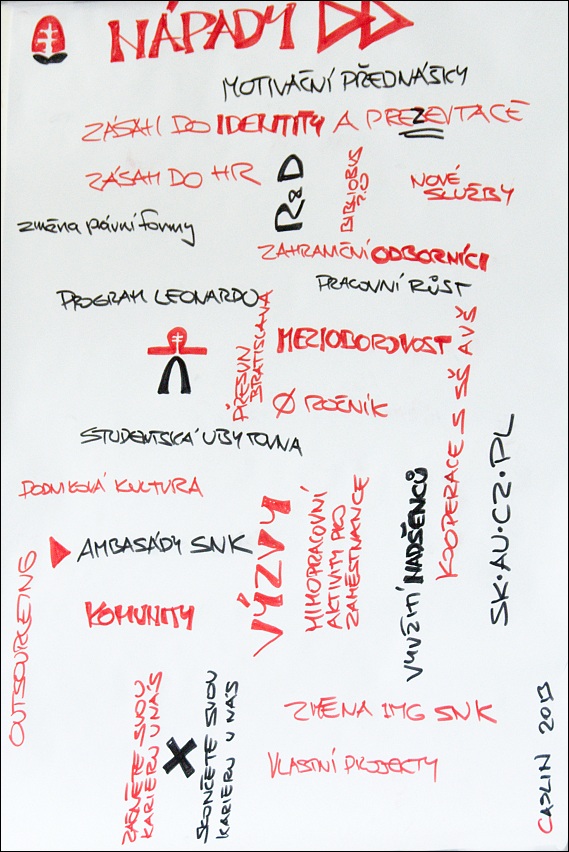 NÁPADY
MOTIVAČNÍ PŘEDNÁŠKY
ZÁSAH DO IDENTITY A PREZEVTACE
ZÁSAH DO HR
R&D
BIBLIOBUS
NOVÉ
SLUŽBY
změna právní formy
ZAHRANIČNÍ ODBORNÍCI
PRACOVNÍ RŮST
PROGRAM LEONARDO
PŘESUN
BRATISLAVA
MEZIOBOROVOST
Ø ROČNÍK
KOOPERACE S SŠ A VŠ
STUDENTSKÁ UBYTOVNA
PODNIKOVÁ KULTURA
AMBASÁDY SNK
VÝZVY
MIMOPRACOVNÍ
AKTIVITY PRO
ZAMĚSTNANCE
VYUŽITÍ NADŠENCŮ
SK·AU·CZ·PL
OUTSOURCING
KOMUNITY
ZAČNĚTE SVOU
KARIERU U NÁS
X
SKONČETE SVOU
KARIERU U NÁS
ZMĚNA IMG SNK
VLASTNÍ PROJEKTY
CASLIN 2013